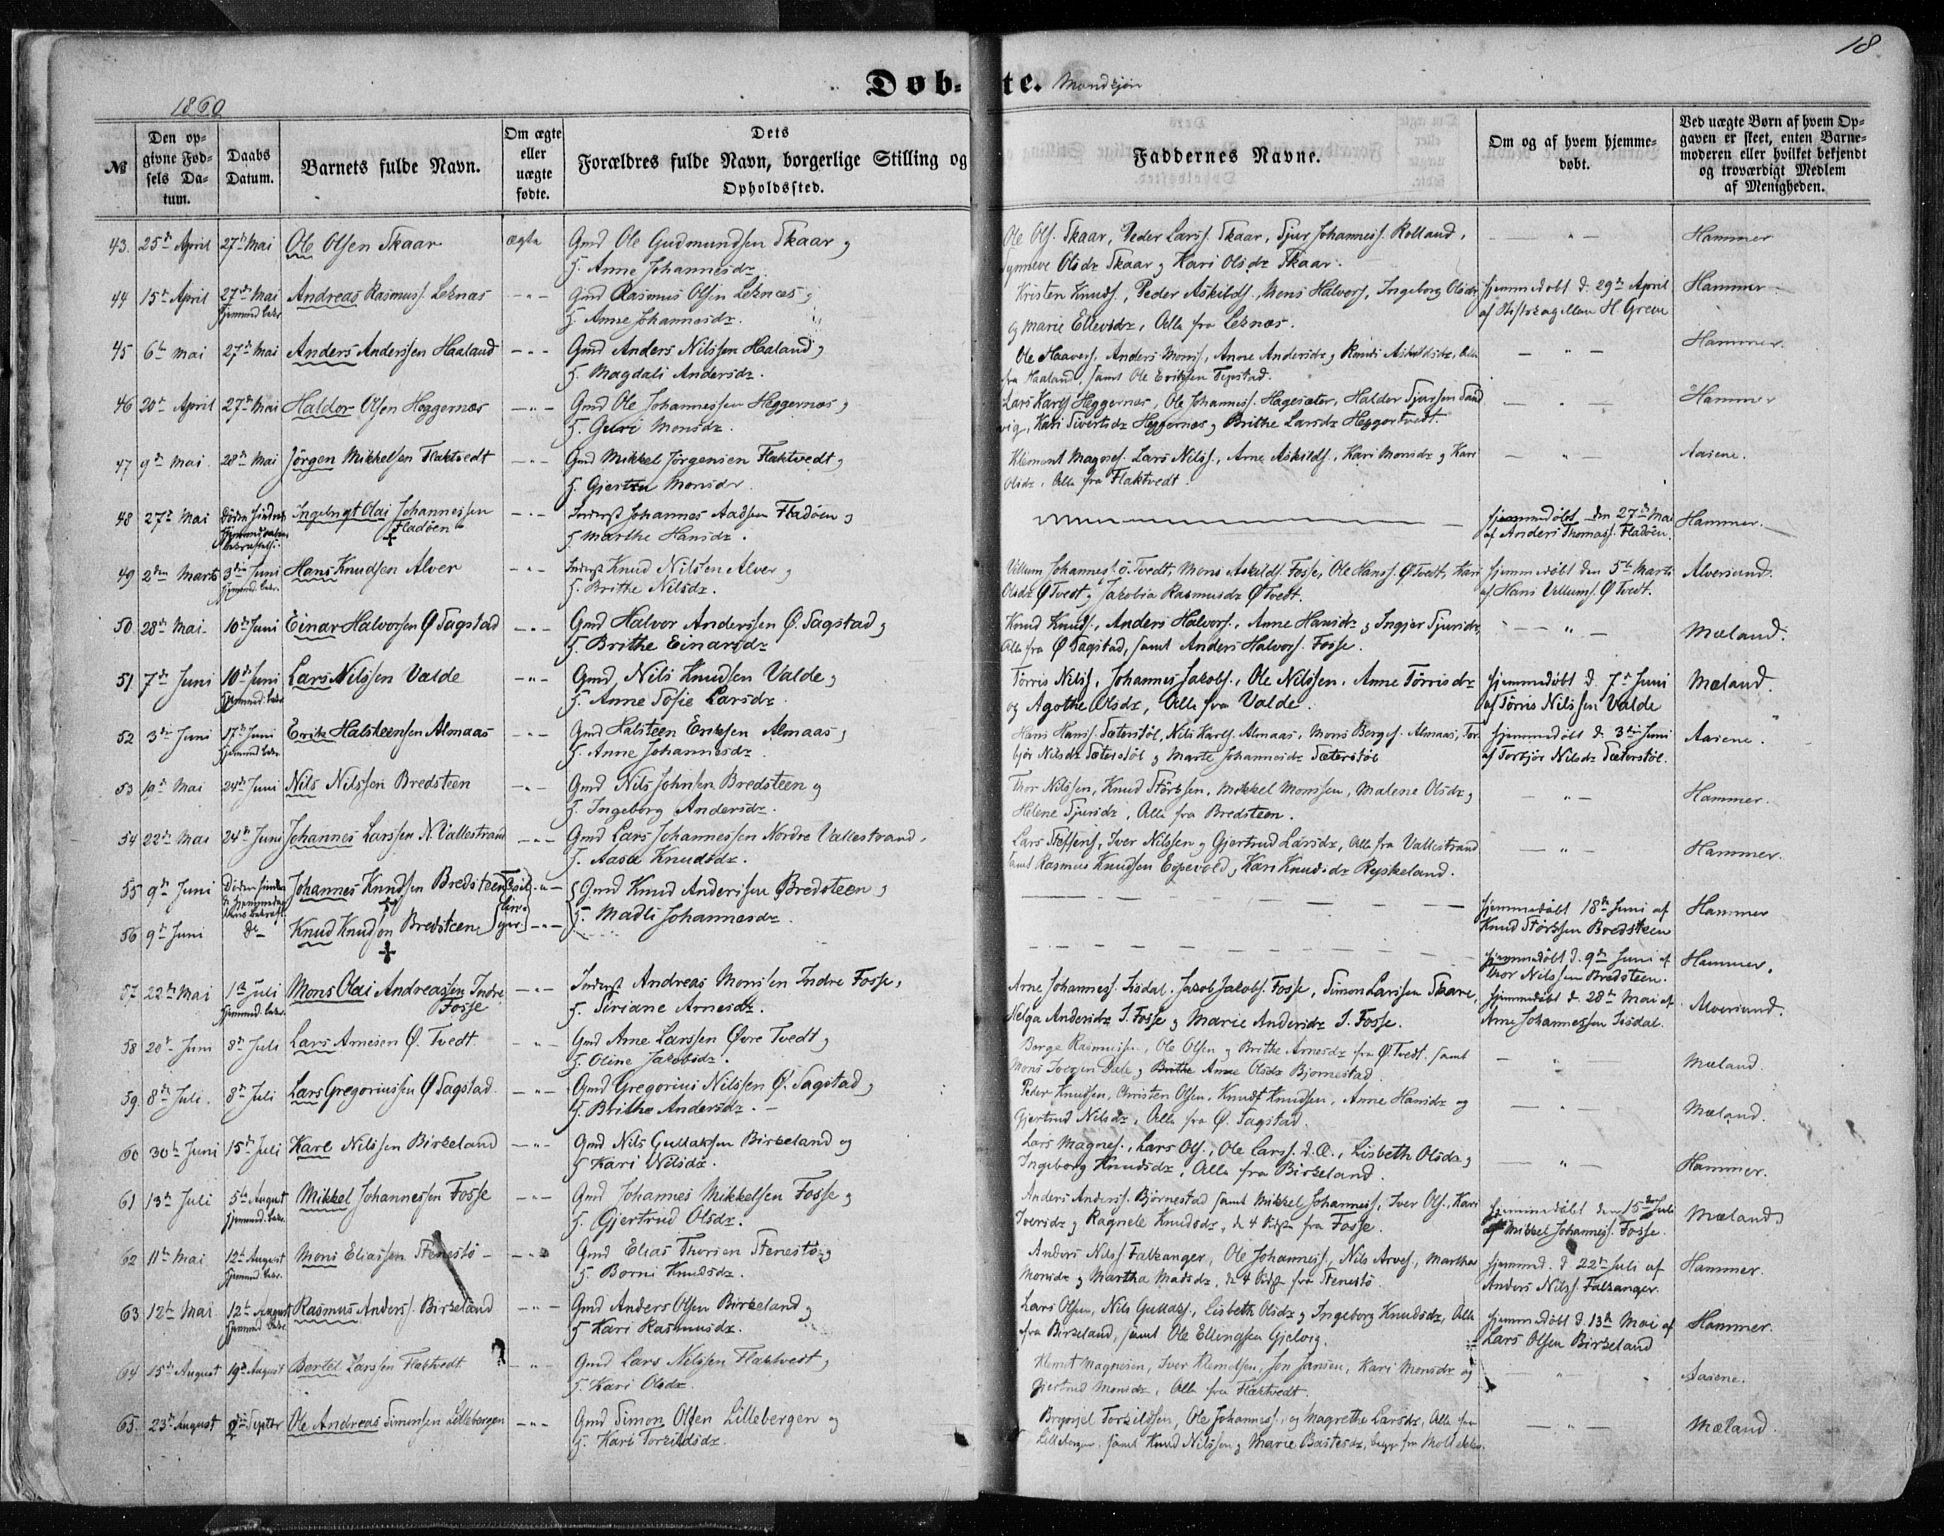 18
Døb-te. Mandkjøn
1860
№
Den opgivne Fødsels Datum.
Daabs Datum.
Barnets fulde Navn.
Om ægte eller uægte fødte.
Dets Forældres fulde Navn, borgerlige Stilling og Opholdssted.
Faddernes Navne.
Om og af hvem hjemmedøbt.
Ved uægte Børn af hvem Opgaven er skeet, enten Barnemoderen eller hvilket bekjendt og troværdigt Medlem af Menigheden.
43. 25de April 27de Mai Ole Olsen Skaar ægte Gmd Ole Gudmundsen Skaar og
H. Anne Johannesdr.
Ole Ols. Skaar, Peder Larss. Skaar, Sjur Johanness. Rolland,
Synneve Olsdr Skaar og Kari Olsdr Skaar.
— " — Hammer
44 15de April 27de Mai Andreas Rasmuss. Leknæs — " — Gmd Rasmus Olsen Leknæs og
H. Anne Johannesdr.
Kristen Knuds., Peder Askilds., Mons Halvors., Ingeborg Olsdr
og Marie Ellevsdr, Alle fra Leknæs.
hjemmedøbt d. 29de April
af H. Greve Hammer
45 6te Mai 27de Mai Anders Anderssen Haaland — " — Gmd Anders Nilssen Haaland og
H. Magdali Andersdr.
Ole Haavers., Anders Monss., Anne Andersdr og Askildsdr, Alle
fra Haaland, samt Ole Eriksen
— " — Hammer
46 20de April 27de Mai Haldor Olsen Heggernæs — " — Gmd Ole Johannessen Heggernæs og
H. Guri Monsdr.
Lars Karls. Heggernæs, Ole Johanness. Hagesæter, Haldor Sjursen Sand
vig, Kari Sivertsdr Heggernæs og Brithe Larsdr Heggertvedt.
— " — Hammer
47 9de Mai 28de Mai Jörgen Mikkelsen Flaktvedt — " — Gmd Mikkel Jörgensen Flaktvedt og
H. Gjertru Monsdr.
Klement Magnes., Lars Nilss., Arne Askilds., Kari Monsdr og Kari
Olsdr, Alle fra Flaktvedt.
— " — Aasene.
48 27de Mai Ingebrigt Olai Johannessen
Fladöen — " — Inderst Johannes Aadsen Fladöen og
H. Marthe Hansdr.
hjemmedöbt den 27de Mai
af Anders Thomass. Fladöen. Hammer.
49 2den Marts 3die Juni Hans Knudsen Alver — " — Inderst Knud Nilssen Alver og
H. Brithe Nilsdr.
Villum Johanness. Ö. Tvedt, Mons Askilds. Fosse, Ole Hanss. Ø Tvedt, Kari
Olsdr Ø Tvedt og Jakobia Rasmusdr Ø Tvedt.
hjemmedöbt den 5te Marts
af Hans Villums. Ø Tvedt. Alversund.
50 28de Mai 10de Juni Einar Halvorsen Ø Sagstad — " — Gmd Halvor Anderssen Ø. Sagstad og
H. Brithe Einarsdr
Knud Knuds., Anders Halvors., Anne Hansdr og Ingjer Sjursdr,
Alle fra Ø Sagstad, samt Anders Halvors. Fosse.
— " — Mæland.
51 7de Juni 10de Juni Lars Nilssen Valde — " — Gmd. Nils Knudsen Valde og
H. Anne Sofie Larsdr.
Törris Nilss., Johannes Jakobs., Ole Nilssen, Anne Törrisdr
og Agothe Olsdr, Alle fra Valde.
hjemmedöbt d. 7de Juni
af Törris Nilssen Valde Mæland.
52 3die Juni 17de Juni Erik Halsteensen Almaas — " — Gmd Halsteen Eriksen Almaas og
H. Anne Johannesdr.
Hans Hanss. Sæterstöl, Nils Karls. Almaas, Mons Berges. Almaas, Tor
björ Nilsdr Sæterstöl og Marte Johannesdr Sæterstöl
hjemmedöbt d. 3die Juni
af Torbjör Nilsdr Sæterstöl. Aasene.
53 19de Mai 24de Juni Nils Nilssen Bredsteen — " — Gmd Nils Johnsen Bredsteen og
H. Ingeborg Andersdr.
Thor Nilssen, Knud Störkssen, Mikkel Monssen, Malene Olsdr og
Helene Sjursdr, Alle fra Bredsteen.
— " — Hammer.
54 22de Mai 24de Juni Johannes Larssen N. Vallestrand — " — Gmd Lars Johannessen Nordre Vallestrand,
H. Aasa Knudsdr.
Lars Steffens., Iver Nilssen og Gjertrud Larsdr, Alle fra Vallestrand
samt Rasmus Knudsen Eggevold og Kari Knudsdr Ryskeland.
— " — Hammer.
55 9de Juni Johannes Knudsen Bredsteen Tvil- — " — Gmd Knud Anderssen Bredsteen og
H. Madli Johannesdr.
hjemmedöbt 18de Juni af
Knud Störkssen Bredsteen Hammer
56 9de Juni do — Knud Knudsøn Bredsteen linger — " —
hjemmedöbt d. 9de Juni af
Thor Nilssen Bredsteen. Hammer.
57 22de Mai 1ste Juli Mons Olai Andreassen Indre
Fosse — " — Inderst Andreas Monssen Indre Fosse,
H. Siriane Arnesdr.
Arne Johanness. Isdal, Jakob Jakobs. Fosse, Simon Larssen Skare,
Helga Andersdr I. Fosse og Marie Andersdr I. Fosse.
hjemmedöbt d. 28de Mai af
Arne Johannessen Isdal. Alversund.
58 20de Juni 8de Juli Lars Arnesen Ø. Tvedt — " — Gmd Arne Larssen Øvre Tvedt og
H. Oline Jakobsdr.
Berge Rasmussen, Ole Olsen og Brithe Arnesdr fra Ø Tvedt, samt
Mons Iversen Dale og Anne Olsdr Bjørnestad.
Mæland.
59. 8de Juli. 8de Juli Lars Gregoriussen Ø Sagstad — " — Gmd Gregorius Nilssen Ø. Sagstad og
H. Brithe Andersdr.
Peder Knudsen, Christen Olsen, Knud Knudsen, Anne Hansdr og
Gjertrud Nilsdr, Alle fra Ø. Sagstad.
— " — Mæland.
60 30te Juni 15de Juli Karl Nilssen Birkeland — " — Gmd Nils Gullaksen Birkeland og
H Kari Nilsdr.
Lars Magnes., Lars Ols., Ole Larss. d. Æ., Lisbeth Olsdr og
Ingeborg Knudsdr, Alle fra Birkeland.
— " — Hammer.
61 13de Juli 5te August Mikkel Johannessen Fosse — " — Gmd Johannes Mikkelsen Fosse og
H. Gjertrud Olsdr.
Anders Anderss. Björnestad samt Mikkel Johanness., Iver Ols., Kari
Iversdr og Ragnele Knudsdr, de 4 sidste fra Fosse.
hjemmedöbt den 15de Juli
af Mikkel Johanness. Fosse. Mæland
62 11te Mai 12te August Mons Eliassen Stenestö — " — Gmd Elias Thorsen Stenestö og
H Borni Knudsdr.
Anders Nilss. Falkanger, Ole Johanness., Nils Arves., Martha
Monsdr og Martha Madsdr, de 4 sidste fra Stenestö.
hjemmd. d. 22de Juli af
Anders Nilss. Falkanger. Hammer.
63 12te Mai 12te August Rasmus Anders. Birkeland — " — Gmd Anders Olsen Birkeland og
H Kari Rasmusdr.
Lars Olsen, Nils Gullaks., Lisbeth Olsdr og Ingeborg Knudsdr, Alle
fra Birkeland, samt Ole Ellingsen Gjelvig.
hjemmedöbt d. 13de Mai af
Lars Olsen Birkeland Hammer.
64 15de August 19de August Bertel Larssen Flaktvedt — " — Gmd Lars Nilssen Flaktvedt og
H. Kari Olsdr.
Klemet Magnesen, Iver Klemetsen, Jon Jansen, Kari Monsdr og
Gjertrud Monsdr, Alle fra Flaktvedt.
Aasene.
65. 23de August Septbr Ole Andreas Simonsen Lillebergen — " — Gmd Simon Olsen Lillebergen og
H. Kari Torkildsdr.
Brynjel Torkildsen, Ole Johanness. og Magrethe Larsdr, Alle fra
Lillebergen, samt Knud Nilssen og Marie Bastesdr, begge fra
— " — Mæland.